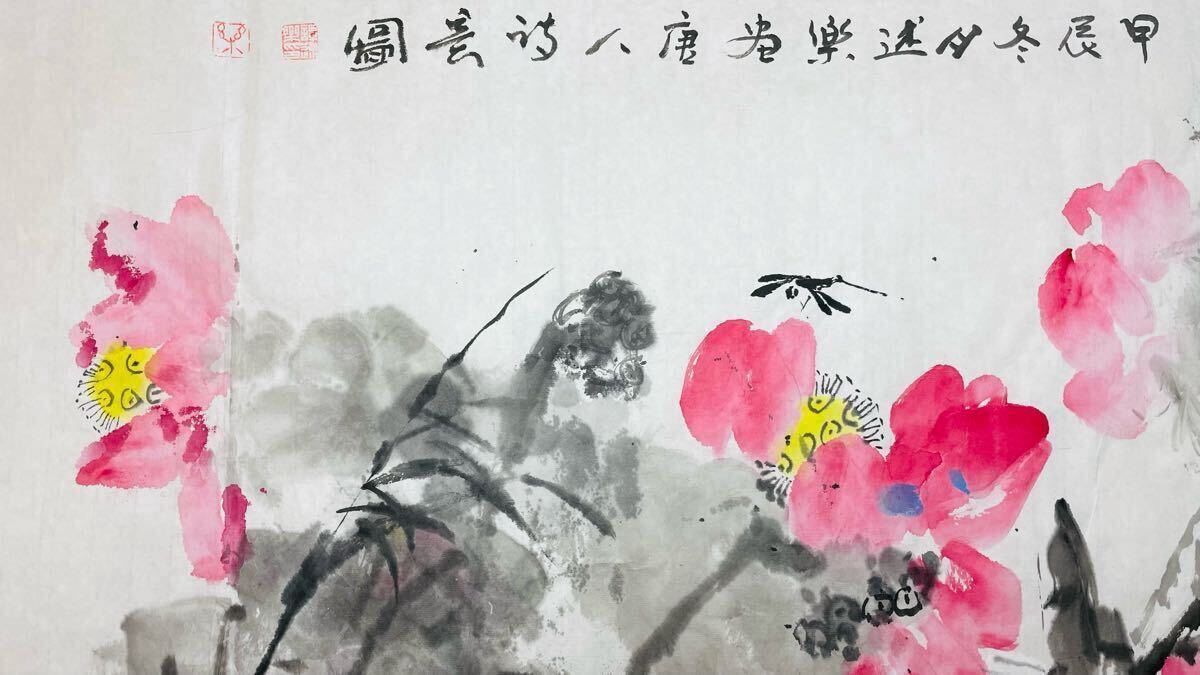 甲辰冬月述樂畫唐人詩意圖